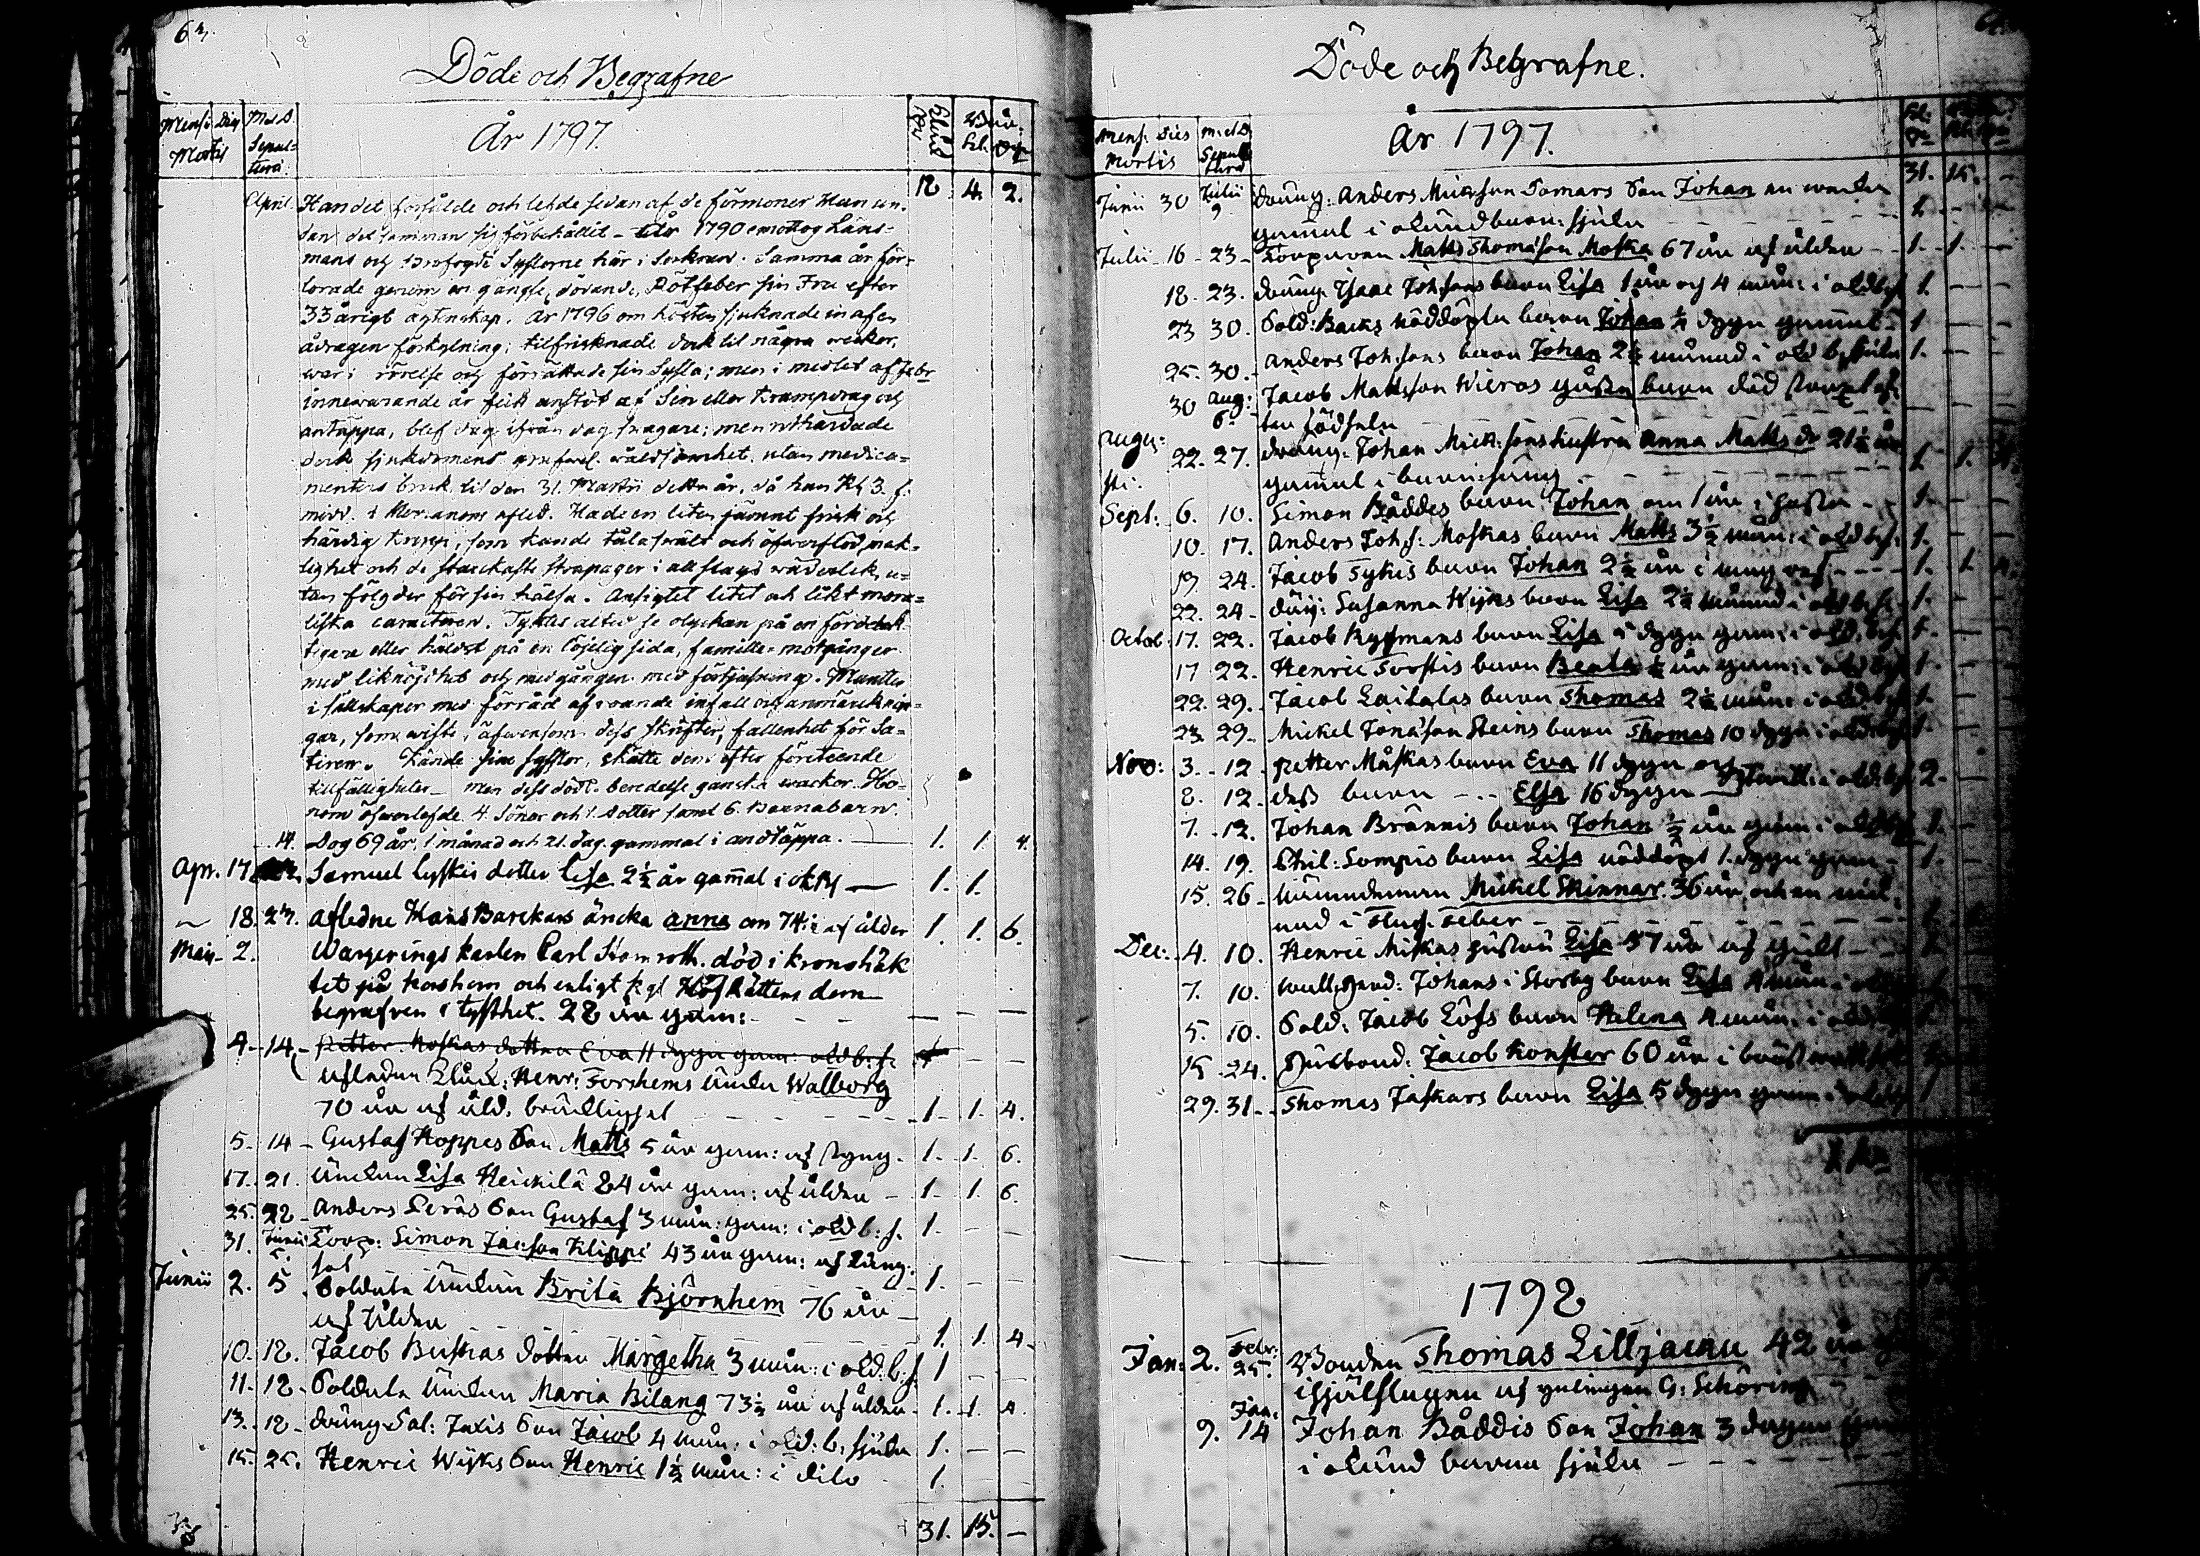 63.
Döde och Begrafne
Mens: Dies Mortis
M et D. Sepulturæ
År 1797.
12 4. 2.
April. Handet försålde och lefde sedan af de förmoner Han un-
dan det samman sig förbehållit – År 1790 emottog Läns-
mans och Brofogde Syslorne här i Socknen. Samma år för-
lorade genom en gångse, dövande, Rötfeber sin Fru efter
33 årigt äktenskap. År 1796 om hösten sjuknade in af en
ådragen förkylning; tilfrisknade dock til några veckor,
war i rörelse och förrättade sin Sysla; men i medlet af Febr
innewarande år fick anstöt af Sen eller Krampdrag och
antäppa, blef dag ifrån dag svagare; men uthärdade
dock sjukdomens våldsamhet utan medica-
menters bruk til den 31. Martii detta år, då han Kl. 3. f.
midd. afled. Hade en liten jämnt frisk och
härdig kropp, som kunde tåla svält och öfwerflöd, mak-
lighet och de starckaste strapazer i all slags väderlek, u-
tan fölgder för sin hälsa. Ansigtet litet och likt mora-
liska caracteren. Tyktes altid se olyckan på en fördelak-
tigare eller häldst på en löjelig sida, famillie motgånger
med liknöjdhet och medgången med förtjusning. Munter
i sällskaper med förråd af roande infall och anmärcknin-
gar, som wiste, äfwensom dess skrifter, fallenhet för Sa-
tiren. Kände sine sysslor, skötte dem efter företeende
tillfälligheter – men dess död. beredelse ganska wacker. Ho-
nom öfwerlefde 4. Sönar och 1. Dotter samt 6. Barnabarn.
14. Dog 69 år, 1 månad och 21 dag. gammal i andtäppa. — 1. 1. 4.
Apr. 17 Samuel Lyskis dotter Lisa 2½ år gamal i — 1. 1.
18. 23. Afledne Hans Barckars äncka Anna om 74: af ålder 1. 1. 6.
Maij 2. Wargerings karlen Carl Stomroth. död i kronohäk
tet på Korsholm och enligt Kgl Hof Rättens dom
begrafven i tysthet. 28 år gam: - - - — — —
4 – 14 – Petter Moskas dotter Eva 11 dygn gam: oldb: s.
afledne Klåck: Henr: Forshems Änka Walborg
70 år af åld. bräcklighet – – – 1 – 1. 4.
5. 14 – Gustaf Hoppes Son Matts 5 år gam: af styng. 1. 1. 6.
17. 21. Änkan Lisa Heickilä 84 år gam: af ålder – 1. 1. 6.
25. 28 – Anders Lerås Son Gustaf 3 mån: gam: i old b: s. 1. – –
31. Junii 5. Torp: Simon Jacson Klippi 43 år gam: af lung-
sot 1. – –
Junii 2. 5 Soldate Änkan Brita Björnhem 76 år
af ålder 1. 1. 4.
10. 12. Jacob Buskas dotter Margetha 3 mån: i old. b: s. 1 – –
11. 12. Soldate Änkan Maria Bilang 73½ år af ålder. 1. 1. 4.
13. 12 – dräng Sal: Jaxis Son Jacob 4 mån: i old: b: sjuka 1. – –
15. 25. Henric Wijks Son Henric 1½ mån: i dito 1.
31. 15. –
Döde och Begrafne.
Mens: Dies Mortis
M et D. Sepulturæ
År 1797.
31. 15. –
Junii 30 Julii 9 dräng: Anders Mickson Somars Son Johan en wecka
gamal i okänd barn: sjuka – – – 1 – –
Julii – 16 – 23 – Torparen Matts Thomason Moska 67 år af ålder – 1. 1. –
18. 23. dräng. Isaac Johsons barn Lisa 1 år och 4 mån: i oldbs. 1. – –
23 30. Sold: Backs nöddöpta barn Johan ½ dygn gamal – 1 – –
25. 30. Anders Johsons barn Johan 2½ månad i old b: sjuka 1. – –
30 Aug: 6. Jacob Mattsson Wieros gåssa barn död straxt ef-
ter födseln – – –
Augu-
sti. 22. 27. dräng. Johan Mick: sons hustru Anna Matts dr 21½ år
gamal i barnsäng – – 1. 1. 4.
Sept: 6. 10. Simon Båddes barn Johan om 1 år i hosta – 1. –
10. 17. Anders Johs: Moskas barn Matts 3½ mån: i old bs: 1. –
19. 24. Jacob Sykis barn Johan 2½ år i mag – – 1. 1. 4.
22. 24 – Susanna Wijks barn Lisa 2½ månad i old b: s. 1. –
Octob: 17. 22. Jacob Ryssmans barn Lisa dygn gam: i old. b: s. 1. –
17 22. Henric Torstis barn Beata ½ år gam: i old bs 1 –
22. 29. Jacob Laitalas barn Thomas 2½ mån: i old. bs 1. –
23. 29. Mickel Jonason Steins barn Thomas 10 dygn i old bs 1. –
Nov: 3. 12. Petter Måskas barn Eva 11 dygn och
8. 12. dess barn – – Elsa 16 dygn i old. bs 2. –
7. 12. Johan Brännis barn Johan ½ år gam i old bs 1. –
14. 19. Phil: Sompis barn Lisa nöddöpt 1. dygn gam – 1. –
15. 26. Nämndeman Mickel Skinnar 36 år och en må-
nad i feber – – –
Dec: 4. 10. Henric Miskas hustru Lisa 57 år af – –
7. 10. Johans i Storby barn Lisa 4 mån i
5. 10. Sold: Jacob Löfs barn Helena 4 mån: i old
15 24. Jacob Konster 60 år i bröst
29. 31. Thomas Jaskars barn Lisa 5 dygn gam i
1798
Jan: 2. Febr: 25. Bonden Thomas Lilljacku 42 år
ihjälslagen af galningen G: Schöring
9. Jan. 14 Johan Båddis Son Johan 3 dagar
i okänd barna sjuka – – –